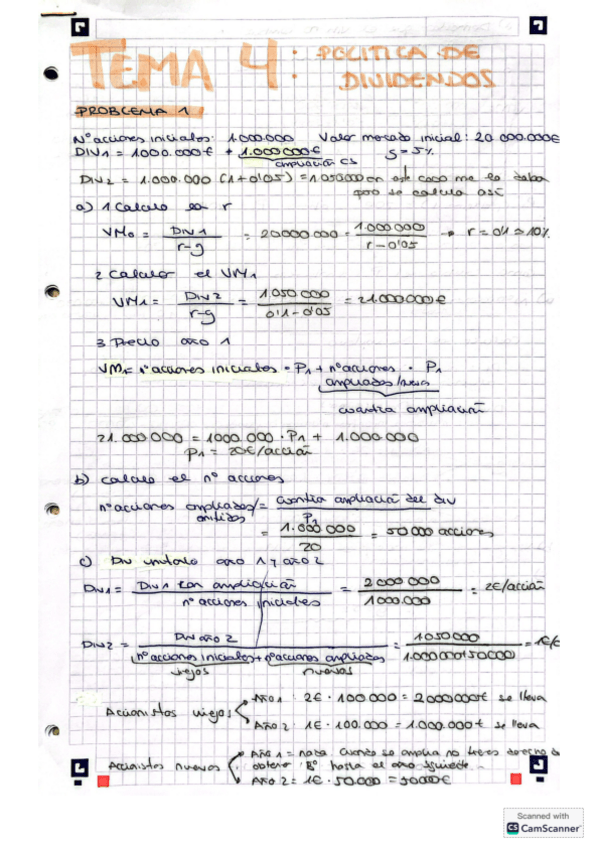 TEMA 4: POLITICA DE DIVIDENDOS
PROBLEMA 1
Nº acciones iniciales: 1.000.000 Valor mercado inicial: 20 000.000€
DIV1 = 1000.000€ + 1.000 000€ g = 5%
ampliación CS
DIV2 = 1.000.000 (1+0'05) = 1.050000 en este caso me lo daban
pero se calcula así
a) 1 Calculo la r
VM0 = DIV1 / r-g = 20000 000 = 1.000 000 / r-0'05 → r = 0'1 ⇒ 10%
2 Calcular el VM1
VM1 = DIV2 / r-g = 1.050 000 / 0'1-0'05 = 21.000.000€
3 Precio año 1
VM1 = nº acciones iniciales · P1 + nº acciones · P1
ampliadas/nuevas
cuantía ampliación
21.000.000 = 1000.000 · P1 + 1.000.000
P1 = 20€/acción
b) calculo el nº acciones
nº acciones ampliadas/ emitidas = cuantía ampliación del div / P1
= 1.000 000 / 20 = 50 000 acciones
c) Div unitario año 1 y año 2
Div1 = Div1 con ampliación / nº acciones iniciales = 2 000 000 / 1000.000 = 2€/acción
Div2 = Div año 2 / nº acciones iniciales + nº acciones ampliadas = 1050000 / 1.000.000+50000 = 1€/
viejos nuevos
Accionistas viejos
Año 1: 2€ · 100.000 = 2000000€ se lleva
Año 2: 1€ · 100.000 = 1.000.000€ se lleva
Accionistas nuevos
Año 1 = nada. Cuando se amplia no tienes derecho a
obtener Bº hasta el año siguiente
Año 2 = 1€ · 50.000 = 50000€
Scanned with
CS CamScanner